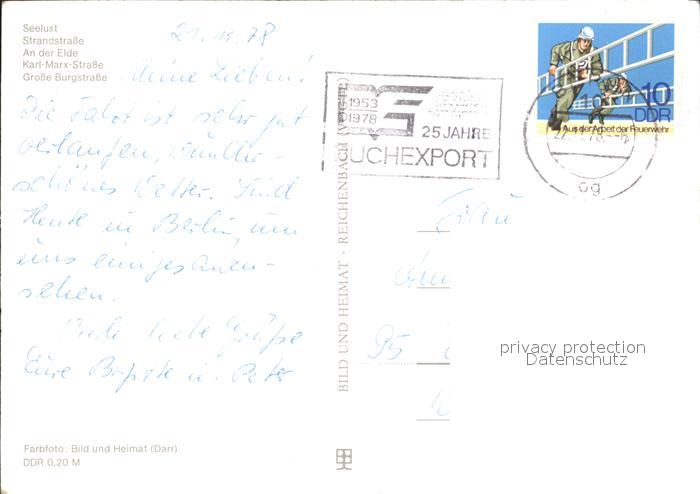 Seelust
Strandstraße
An der Elde
Karl-Marx-Straße
Große Burgstraße
21.11.78
Meine Lieben!
Die Fahrt ist sehr gut
verlaufen, wunder-
schönes Wetter. Sind
Heute in Berlin, um
uns einiges anzu-
sehen.
Viele liebe Grüße
Eure Brigitte u. Peter
Farbfoto: Bild und Heimat (Darr)
DDR 0,20 M
BILD UND HEIMAT · REICHENBACH (VOGTL)
1953
1978
25 JAHRE
BUCHEXPORT
10
DDR
Aus der Arbeit der Feuerwehr
og
Frau
95
privacy protection
Datenschutz